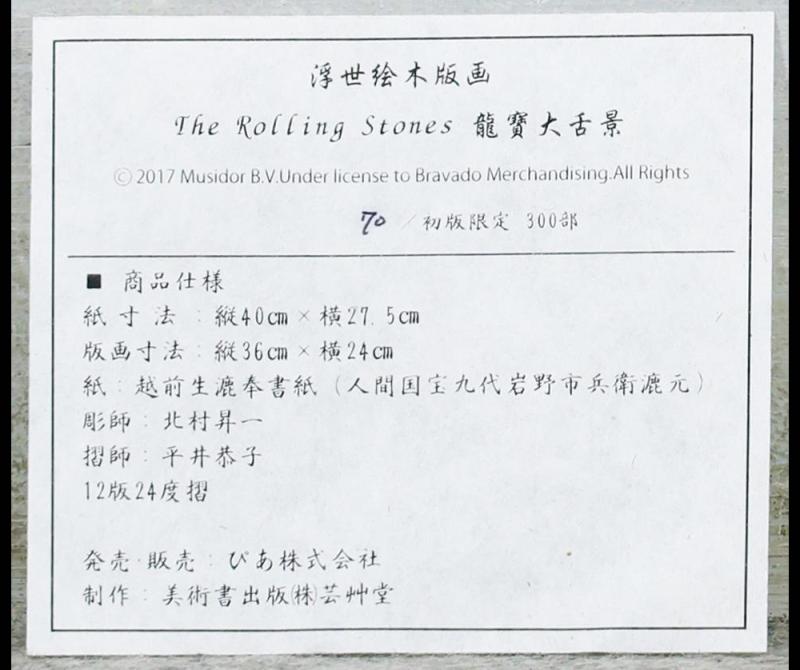 浮世絵木版画
The Rolling Stones 龍寶大舌景
Ⓒ 2017 Musidor B.V.Under license to Bravado Merchandising.All Rights
70 / 初版限定 300部
■ 商品仕様
紙寸法：縦40㎝×横27.5㎝
版画寸法：縦36㎝×横24㎝
紙：越前生漉奉書紙（人間国宝九代岩野市兵衛漉元）
彫師：北村昇一
摺師：平井恭子
12版24度摺
発売・販売：ぴあ株式会社
制作：美術書出版㈱芸艸堂